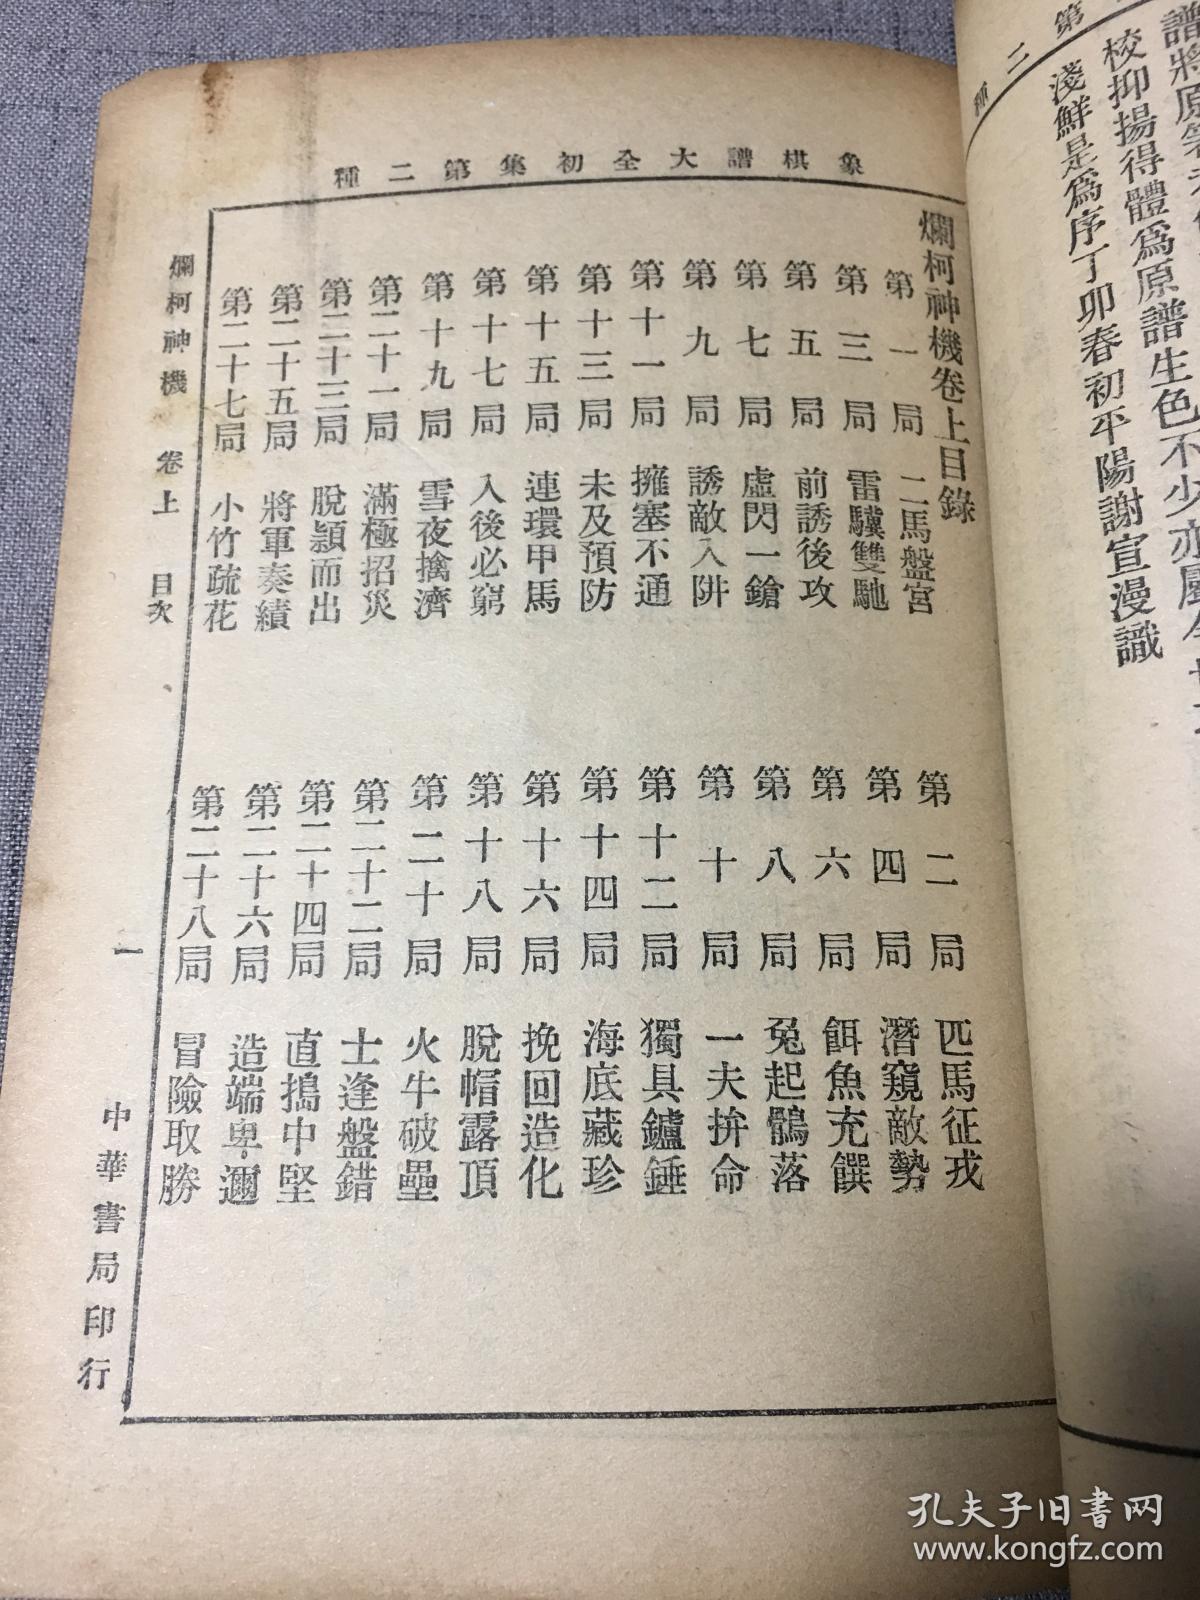 淺鮮是爲序丁卯春初平陽謝宣漫識
校抑揚得體爲原譜生色不少亦
第二種
象棋譜大全初集第二種
爛柯神機卷上目錄
第一局 二馬盤宮
第二局 匹馬征戎
第三局 雷驥雙馳
第四局 潛窺敵勢
第五局 前誘後攻
第六局 餌魚充饌
第七局 虛閃一鎗
第八局 兔起鶻落
第九局 誘敵入阱
第十局 一夫拚命
第十一局 擁塞不通
第十二局 獨具鑪錘
第十三局 未及預防
第十四局 海底藏珍
第十五局 連環甲馬
第十六局 挽回造化
第十七局 入後必窮
第十八局 脫帽露頂
第十九局 雪夜擒濟
第二十局 火牛破壘
第二十一局 滿極招災
第二十二局 士逢盤錯
第二十三局 脫穎而出
第二十四局 直搗中堅
第二十五局 將軍奏績
第二十六局 造端卑邇
第二十七局 小竹疏花
第二十八局 冒險取勝
爛柯神機 卷上 目次
一
中華書局印行
孔夫子旧书网
www.kongfz.com